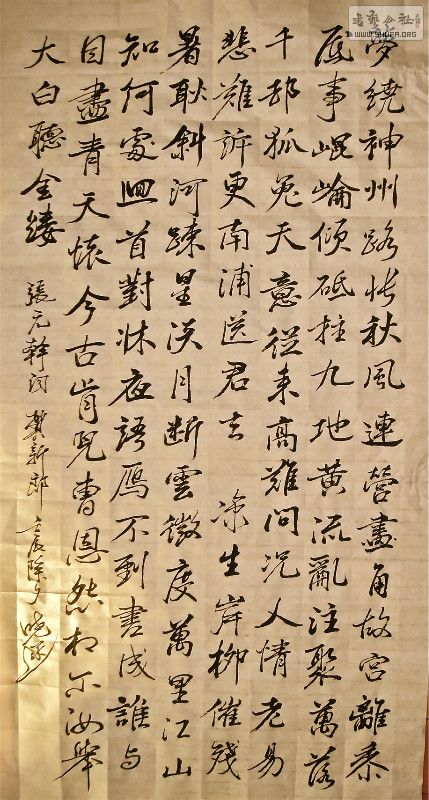 夢繞神州路悵秋風連營畫角故宮離黍
底事崐崘傾砥柱九地黃流亂注聚萬落
千邨狐兔天意從來高難問況人情老易
悲難訴更南浦送君去 涼生岸柳催殘
暑耿斜河疎星淡月斷雲微度萬里江山
知何處囬首對牀夜語雁不到書成誰与
目盡青天懷今古肯兒曹恩怨相尔汝舉
大白聽金縷 張元幹詞賀新郎 壬辰除夕
書藝公社
WWW.SHUFA.ORG